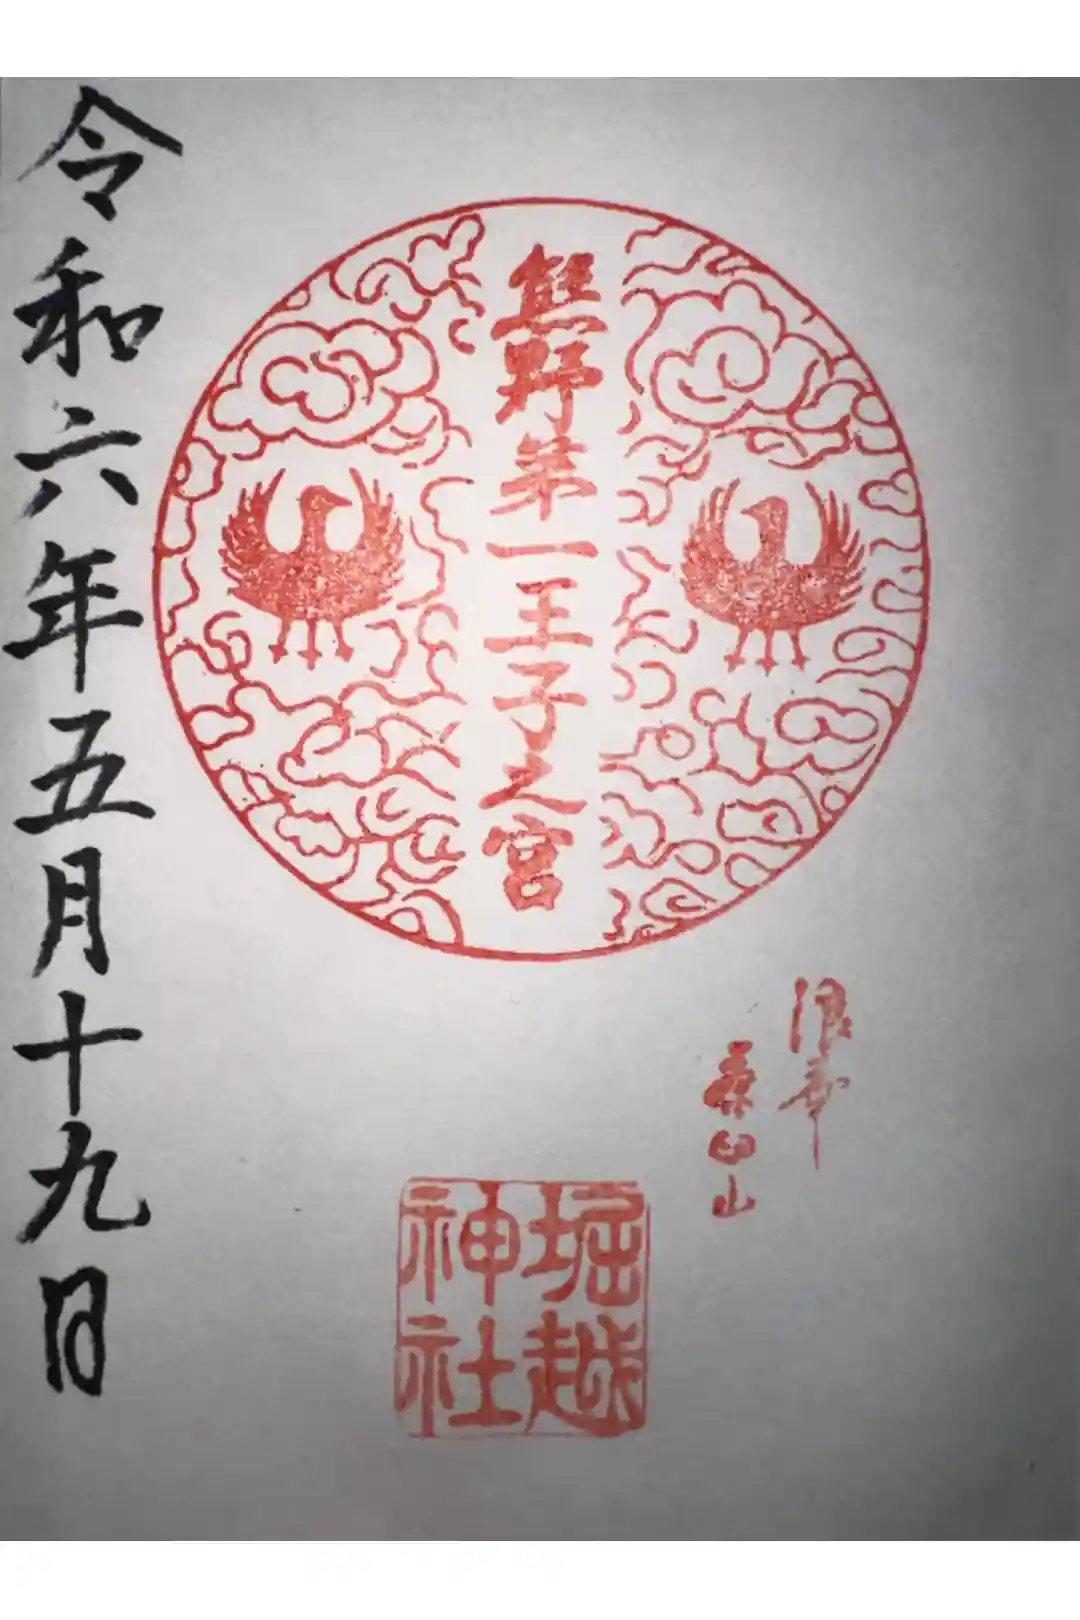 浪華
茶臼山
熊野第一王子之宮
堀越
神社
令和六年五月十九日